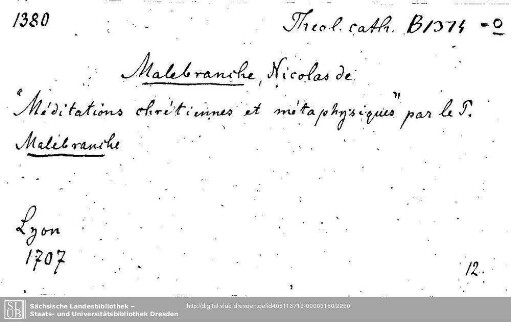 1380 Theol. cath. B1374
Malebranche, Nicolas de
"Méditations chrétiennes et métaphysiques" par le P.
Malebranche
Lyon
1707
12.
Sächsische Landesbibliothek –
Staats- und Universitätsbibliothek Dresden